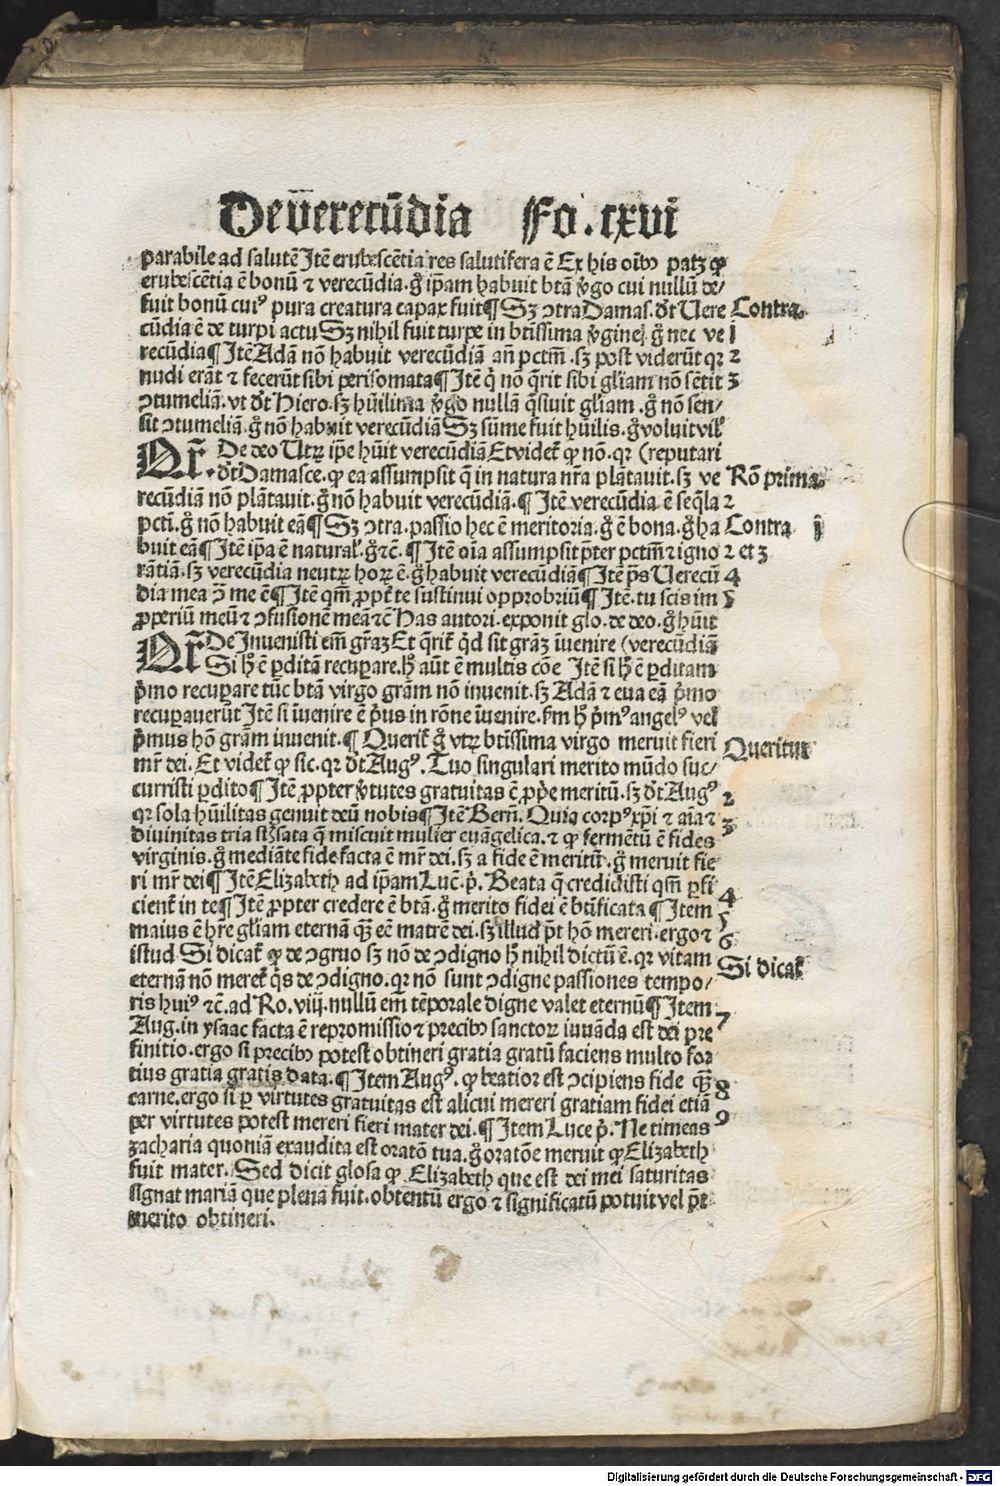 De verecūdia Fo. cxvi
parabile ad salutē Itē erubescētia res salutifera ē Ex his oībꝰ patꝫ ꝙ
erubescētia ē bonū ⁊ verecūdia. gͦ ip̄am habuit btā v̓go cui nullū de⸗
fuit bonū cuiꝰ pura creatura capax fuit¶ Sꝫ ꝯtra Damas. dt̓ Vere Contra.
cūdia ē de turpi actu Sꝫ nihil fuit turpe in btīssima v̓gine. gͦ nec ve 1
recūdia¶ Itē Adā nō habuit verecūdiā an̄ pctm̄. sꝫ post viderūt qꝛ 2
nudi erāt ⁊ fecerūt sibi perisomata¶ Itē q̓ nō q̄rit sibi gl̓iam nō sētit 3
ꝯtumeliā. vt dt̓ Hiero. sꝫ hūilima v̓go nullā q̄siuit gl̓iam. gͦ nō sen⸗
sit ꝯtumeliā. gͦ nō habuit verecūdiā Sꝫ sūme fuit hūilis. gͦ voluit vil̓
Qr̄. De deo Utꝝ ip̄e hūit verecūdiā Et videt̓ ꝙ nō. qꝛ (reputari
dt̓ Damasce. ꝙ ea assumpsit q̄ in natura nr̄a plātauit. sꝫ ve Rō prima.
recūdiā nō plātauit. gͦ nō habuit verecūdiā. ¶ Itē verecūdia ē seq̄la 2
pcti. gͦ nō habuit eā¶ Sꝫ ꝯtra. passio hec ē meritoria. gͦ ē bona. gͦ ha Contra. 1
buit eā¶ Itē ip̄a ē natural̓. gͦ ⁊c̄. ¶ Itē oīa assumpsit p̄ter pctm̄ ⁊ igno 2 et 3
rātiā. sꝫ verecūdia neutꝝ hoꝝ ē. gͦ habuit verecūdiā¶ Itē p̄s Verecū 4
dia mea ꝯ̄ me ē¶ Itē qm̄ ꝓpt̓ te sustinui opprobriū¶ Itē. tu scis im 5
ꝓperiū meū ⁊ ꝯfusionē meā ⁊c̄ Has autori. exponit glo. de deo. gͦ hūit
Qr̄ De Inuenisti em̄ gr̄aꝫ Et q̄rit̓ q̓d sit gr̄aꝫ īuenire (verecūdiā
Si hͦ ē ꝑditā recuꝑare. hͦ aūt ē multis cōe Itē si hͦ ē ꝑditam
p̓mo recuꝑare tūc btā virgo grām nō inuenit. sꝫ Adā ⁊ eua eā p̓mo
recuꝑauerūt Itē si īuenire ē p̓us in rōne īuenire. ẜm hͦ p̓mꝰ angelꝰ vel
p̓mus hō grām inuenit. ¶ Querit̓ gͦ vtꝝ btīssima virgo meruit fieri Queritur
mr̄ dei. Et videt̓ ꝙ sic. qꝛ dt̓ Augꝰ. Tuo singulari merito mūdo suc⸗
curristi ꝑdito¶ Itē ꝓpter v̓tutes gratuitas ē ꝓp̓e meritū. sꝫ dt̓ Augꝰ 2
qꝛ sola hūilitas genuit deū nobis¶ Itē Bern̄. Quia corpꝰ xp̄i ⁊ aīa ⁊ 3
diuinitas tria st̓ sata q̄ miscuit mulier euāgelica. ⁊ ꝙ fermētū ē fides
virginis. gͦ mediāte fide facta ē mr̄ dei. sꝫ a fide ē meritū. gͦ meruit fie
ri mr̄ dei¶ Itē Elizabeth ad ip̄am Luc̄. p̓. Beata q̄ credidisti qm̄ ꝑfi 4
cient̓ in te¶ Itē ꝓpter credere ē btā. gͦ merito fidei ē btīficata ¶ Item 5
maius ē hr̄e gl̓iam eternā qꝫ̄ eē matrē dei. sꝫ illud pt̄ hō mereri. ergo ⁊ 6
istud Si dicat̓ ꝙ de ꝯgruo sꝫ nō de ꝯdigno hͦ nihil dictū ē. qꝛ vitam Si dicat̓
eternā nō meret̓ q̓s de ꝯdigno. qꝛ nō sunt ꝯdigne passiones tempo⸗
ris huiꝰ ⁊c̄. ad Ro. viij. nullū em̄ tēporale digne valet eternū¶ Item 7
Aug. in ysaac facta ē repromissio ⁊ precibꝰ sanctoꝝ iuuāda est dei pre
finitio. ergo si precibꝰ potest obtineri gratia gratū faciens multo for
tius gratia gratis data. ¶ Item Augꝰ. ꝙ beatior est ꝯcipiens fide qꝫ̄ 8
carne. ergo si ꝑ virtutes gratuitas est alicui mereri gratiam fidei etiā
per virtutes potest mereri fieri mater dei. ¶ Item Luce p̓. Ne timeas 9
zacharia quoniā exaudita est oratō tua. gͦ oratōe meruit ꝙ Elizabeth
fuit mater. Sed dicit glosa ꝙ Elizabeth que est dei mei saturitas
signat mariā que plena fuit. obtentū ergo ⁊ significatū potuit vel p̄t
merito obtineri.
Digitalisierung gefördert durch die Deutsche Forschungsgemeinschaft - DFG